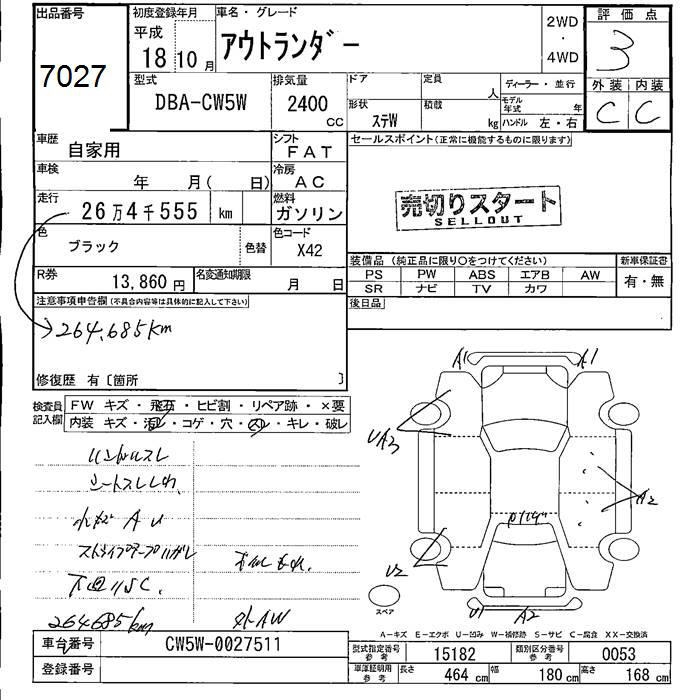 出品番号
7027
初度登録年月
平成
18年10月
車名・グレード
アウトランダー
2WD
・
4WD
評価点
3
外装 内装
C C
型式
DBA-CW5W
排気量
2400
CC
ドア
形状
ステW
定員
人
積載
kg
ディーラー・並行
モデル年式
年
ハンドル 左・右
車歴
自家用
シフト
FAT
セールスポイント(正常に機能するものに限ります)
車検
年 月( 日)
冷房
AC
走行
26万4千555 km
燃料
ガソリン
売切りスタート
SELLOUT
色
ブラック
色替
色コード
X42
装備品 (純正品に限り○をつけてください)
新車保証書
PS PW ABS エアB AW
SR ナビ TV カワ
有・無
R券
13,860円
名変通知期限
月 日
後日品
注意事項申告欄(不具合内容等は具体的に記入して下さい)
264,685km
修復歴 有〔箇所 〕
検査員
記入欄
FW キズ・飛石・ヒビ割・リペア跡・×要
内装 キズ・汚レ・コゲ・穴・スレ・キレ・破レ
ハンドルスレ
シートスレしわ
A U
ストライプテープハガレ
下回りSC.
264685km
外AW
A1 A1
UA3
A2
U2
U1 A2
スペア
A-キズ E-エクボ U-凹み W-補修跡 S-サビ C-腐食 XX-交換済
車台番号
CW5W-0027511
登録番号
型式指定番号
参考
15182
類別区分番号
参考
0053
車庫証明用
参考
長さ 464 cm 幅 180 cm 高さ 168 cm